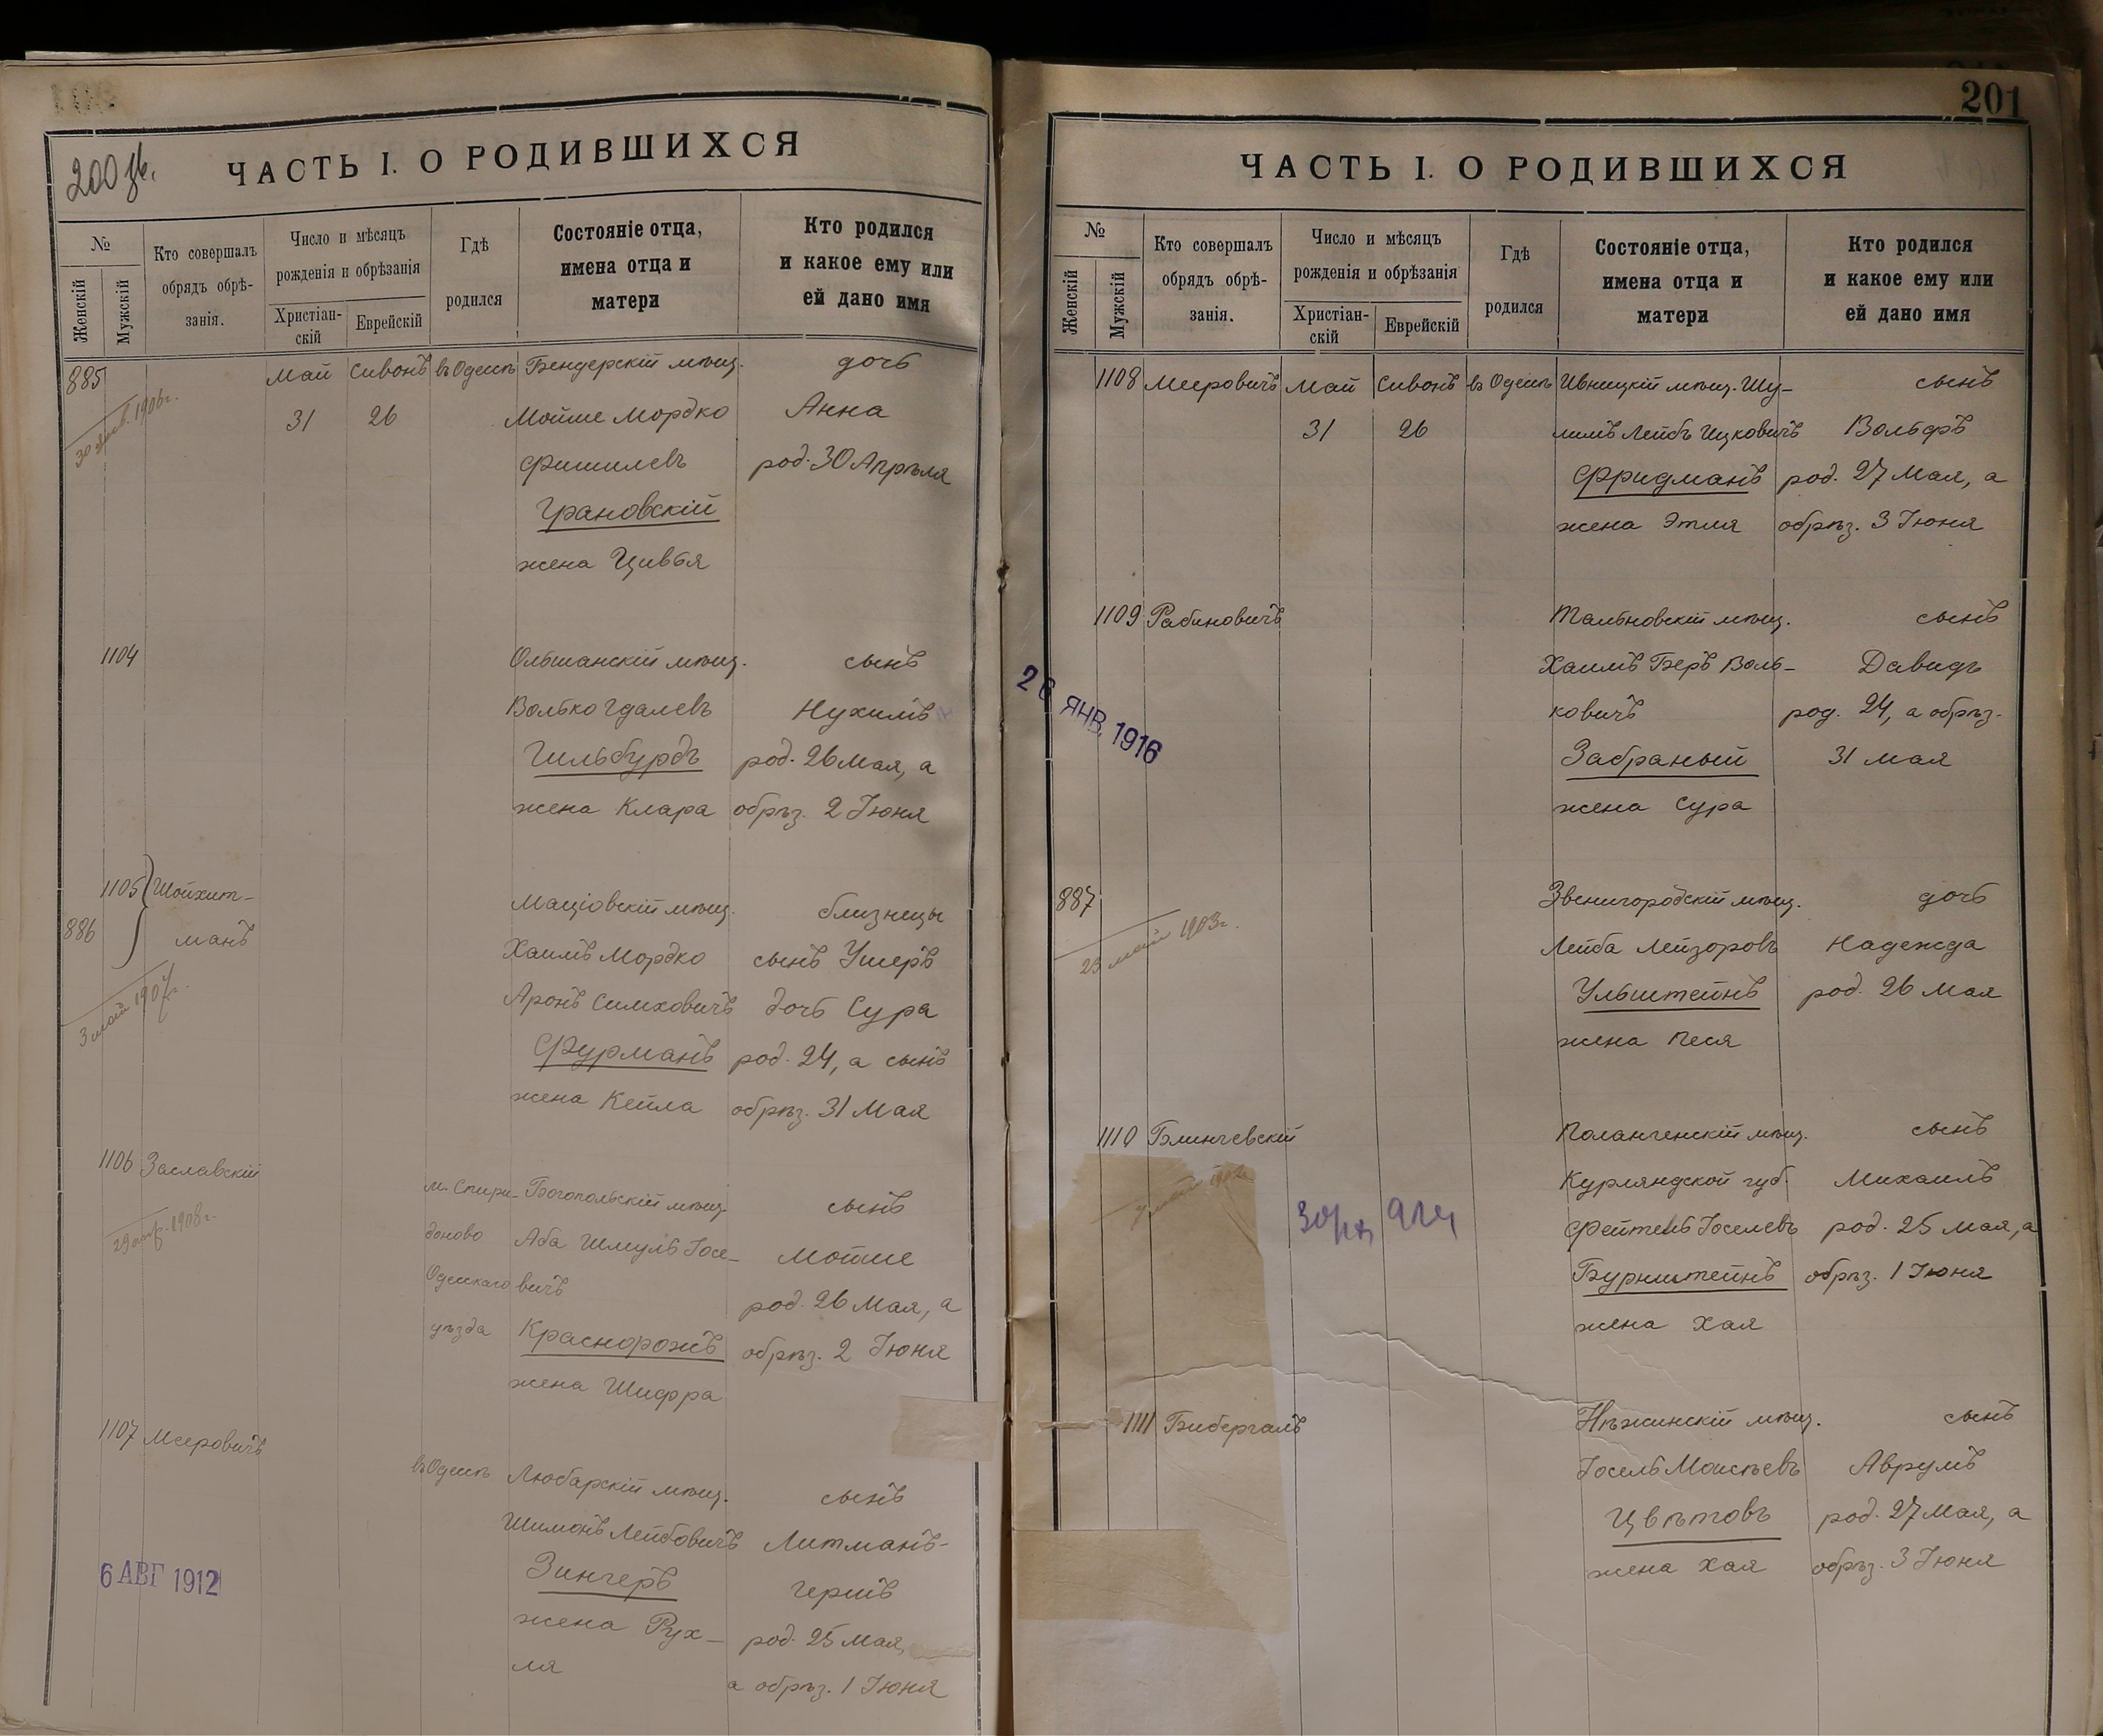 200 об.
ЧАСТЬ I. О РОДИВШИХСЯ
№
Женскій
Мужскій
Кто совершалъ
обрядъ обрѣ-
занія.
Число и мѣсяцъ
рожденія и обрѣзанія
Христіан-
скій
Еврейскій
Гдѣ
родился
Состояніе отца,
имена отца и
матери
Кто родился
и какое ему или
ей дано имя
885 Май Сивонъ въ Одессѣ Бендерскій мѣщ. дочь
31 26 Мойше Мордко Анна
Фишилевъ род. 30 Апрѣля
Грановскій
жена Цивья
1104 Ольшанскій мѣщ. сынъ
Волько Гдалевъ Нухимъ
Гильбурдъ род. 26 Мая, а
жена Клара обрѣз. 2 Іюня
1105 Шойхит- Маціовскій мѣщ. близнецы
886 манъ Хаимъ Мордко сынъ Ушеръ
Аронъ Симховичъ дочь Сура
3 май 1907г.
Фурманъ род. 24, а сынъ
жена Кейла обрѣз. 31 Мая
1106 Заславскій м. Спири- Богопольскій мѣщ. сынъ
доново Аба Шмуль Іосе- Мойше
29 апр. 1908г.
Одесскаго вичъ род. 26 Мая, а
уѣзда Краснорожъ обрѣз. 2 Іюня
жена Шифра
1107 Мееровичъ въ Одессѣ Любарскій мѣщ. сынъ
Шимонъ Лейбовичъ Литманъ-
6 АВГ 1912
Зингеръ Гершъ
жена Рух- род. 25 Мая,
ля а обрѣз. 1 Іюня
201
ЧАСТЬ I. О РОДИВШИХСЯ
№
Женскій
Мужскій
Кто совершалъ
обрядъ обрѣ-
занія.
Число и мѣсяцъ
рожденія и обрѣзанія
Христіан-
скій
Еврейскій
Гдѣ
родился
Состояніе отца,
имена отца и
матери
Кто родился
и какое ему или
ей дано имя
1108 Мееровичъ Май Сивонъ въ Одессѣ Ивницкій мѣщ. Шу- сынъ
31 26 лимъ Лейбъ Ицковичъ Вольфъ
Фридманъ род. 27 Мая, а
жена Этля обрѣз. 3 Іюня
1109 Рабиновичъ Тальновскій мѣщ. сынъ
Хаимъ Беръ Воль- Давидъ
26 ЯНВ. 1916
ковичъ род. 24, а обрѣз.
Забраный 31 мая
жена Сура
887 Звенигородскій мѣщ. дочь
23 май 1903г.
Лейба Лейзоровъ Надежда
Ульштейнъ род. 26 мая
жена Песя
1110 Блинчевскій Полангенскій мѣщ. сынъ
Курляндской губ. Михаилъ
Фейтель Іоселевъ род. 25 мая, а
Бурнштейнъ обрѣз. 1 Іюня
жена Хая
1111 Бибергалъ Нѣжинскій мѣщ. сынъ
Іосель Моисеевъ Аврумъ
Цвѣтовъ род. 27 Мая, а
жена Хая обрѣз. 3 Іюня